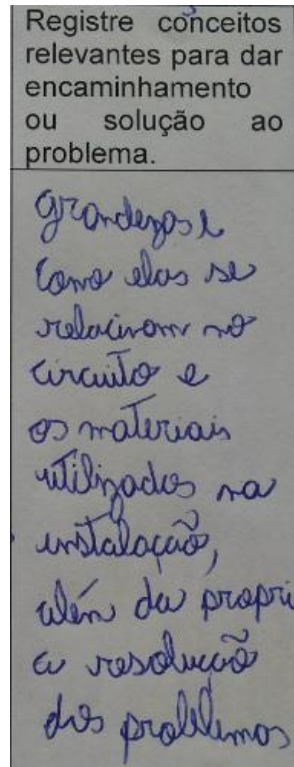 Registre conceitos
relevantes para dar
encaminhamento
ou solução ao
problema.
grandezas e
como elas se
relacionam no
circuito e
os materiais
utilizados na
instalação,
além da propri
a resolução
dos problemas